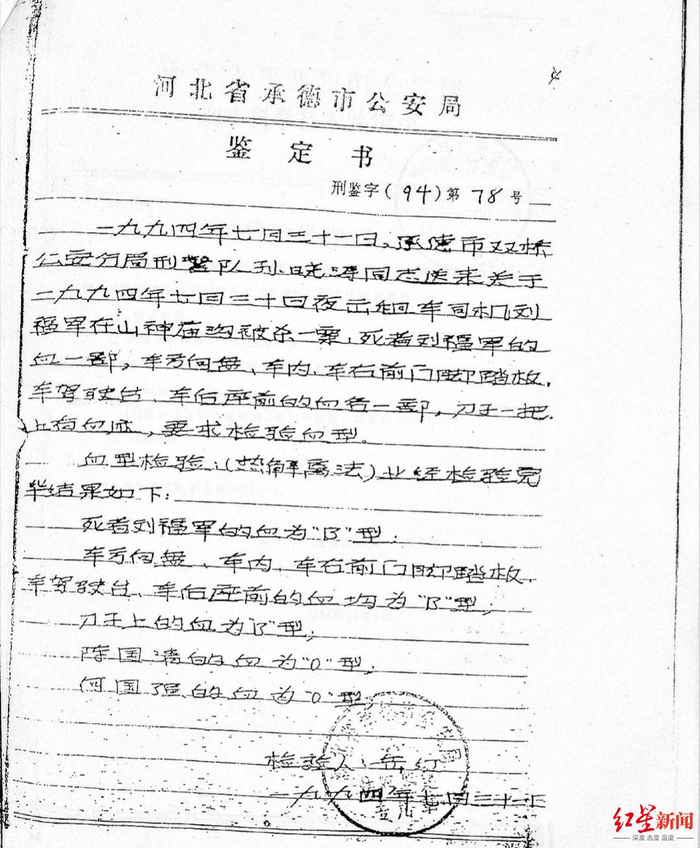 河北省承德市公安局
鉴定书
刑鉴字(94)第78号
一九九四年七月三十一日，承德市双桥
公安分局刑警队孙晓涛同志送来关于
一九九四年七月三十日夜出租车司机刘
福军在山神庙沟被杀一案，死者刘福军的
血一部，车方向盘、车内、车右前门脚踏板、
车驾驶台、车后座前的血各一部，刀子一把
上有血迹，要求检验血型。
血型检验：(热解离法)业经检验完
毕结果如下：
死者刘福军的血为"B"型；
车方向盘、车内、车右前门脚踏板、
车驾驶台、车后座前的血均为"B"型；
刀子上的血为"B"型；
陈国清的血为"O"型；
何国强的血为"O"型；
检验人：岳红
一九九四年七月三十一日
红星新闻
深度 态度 温度